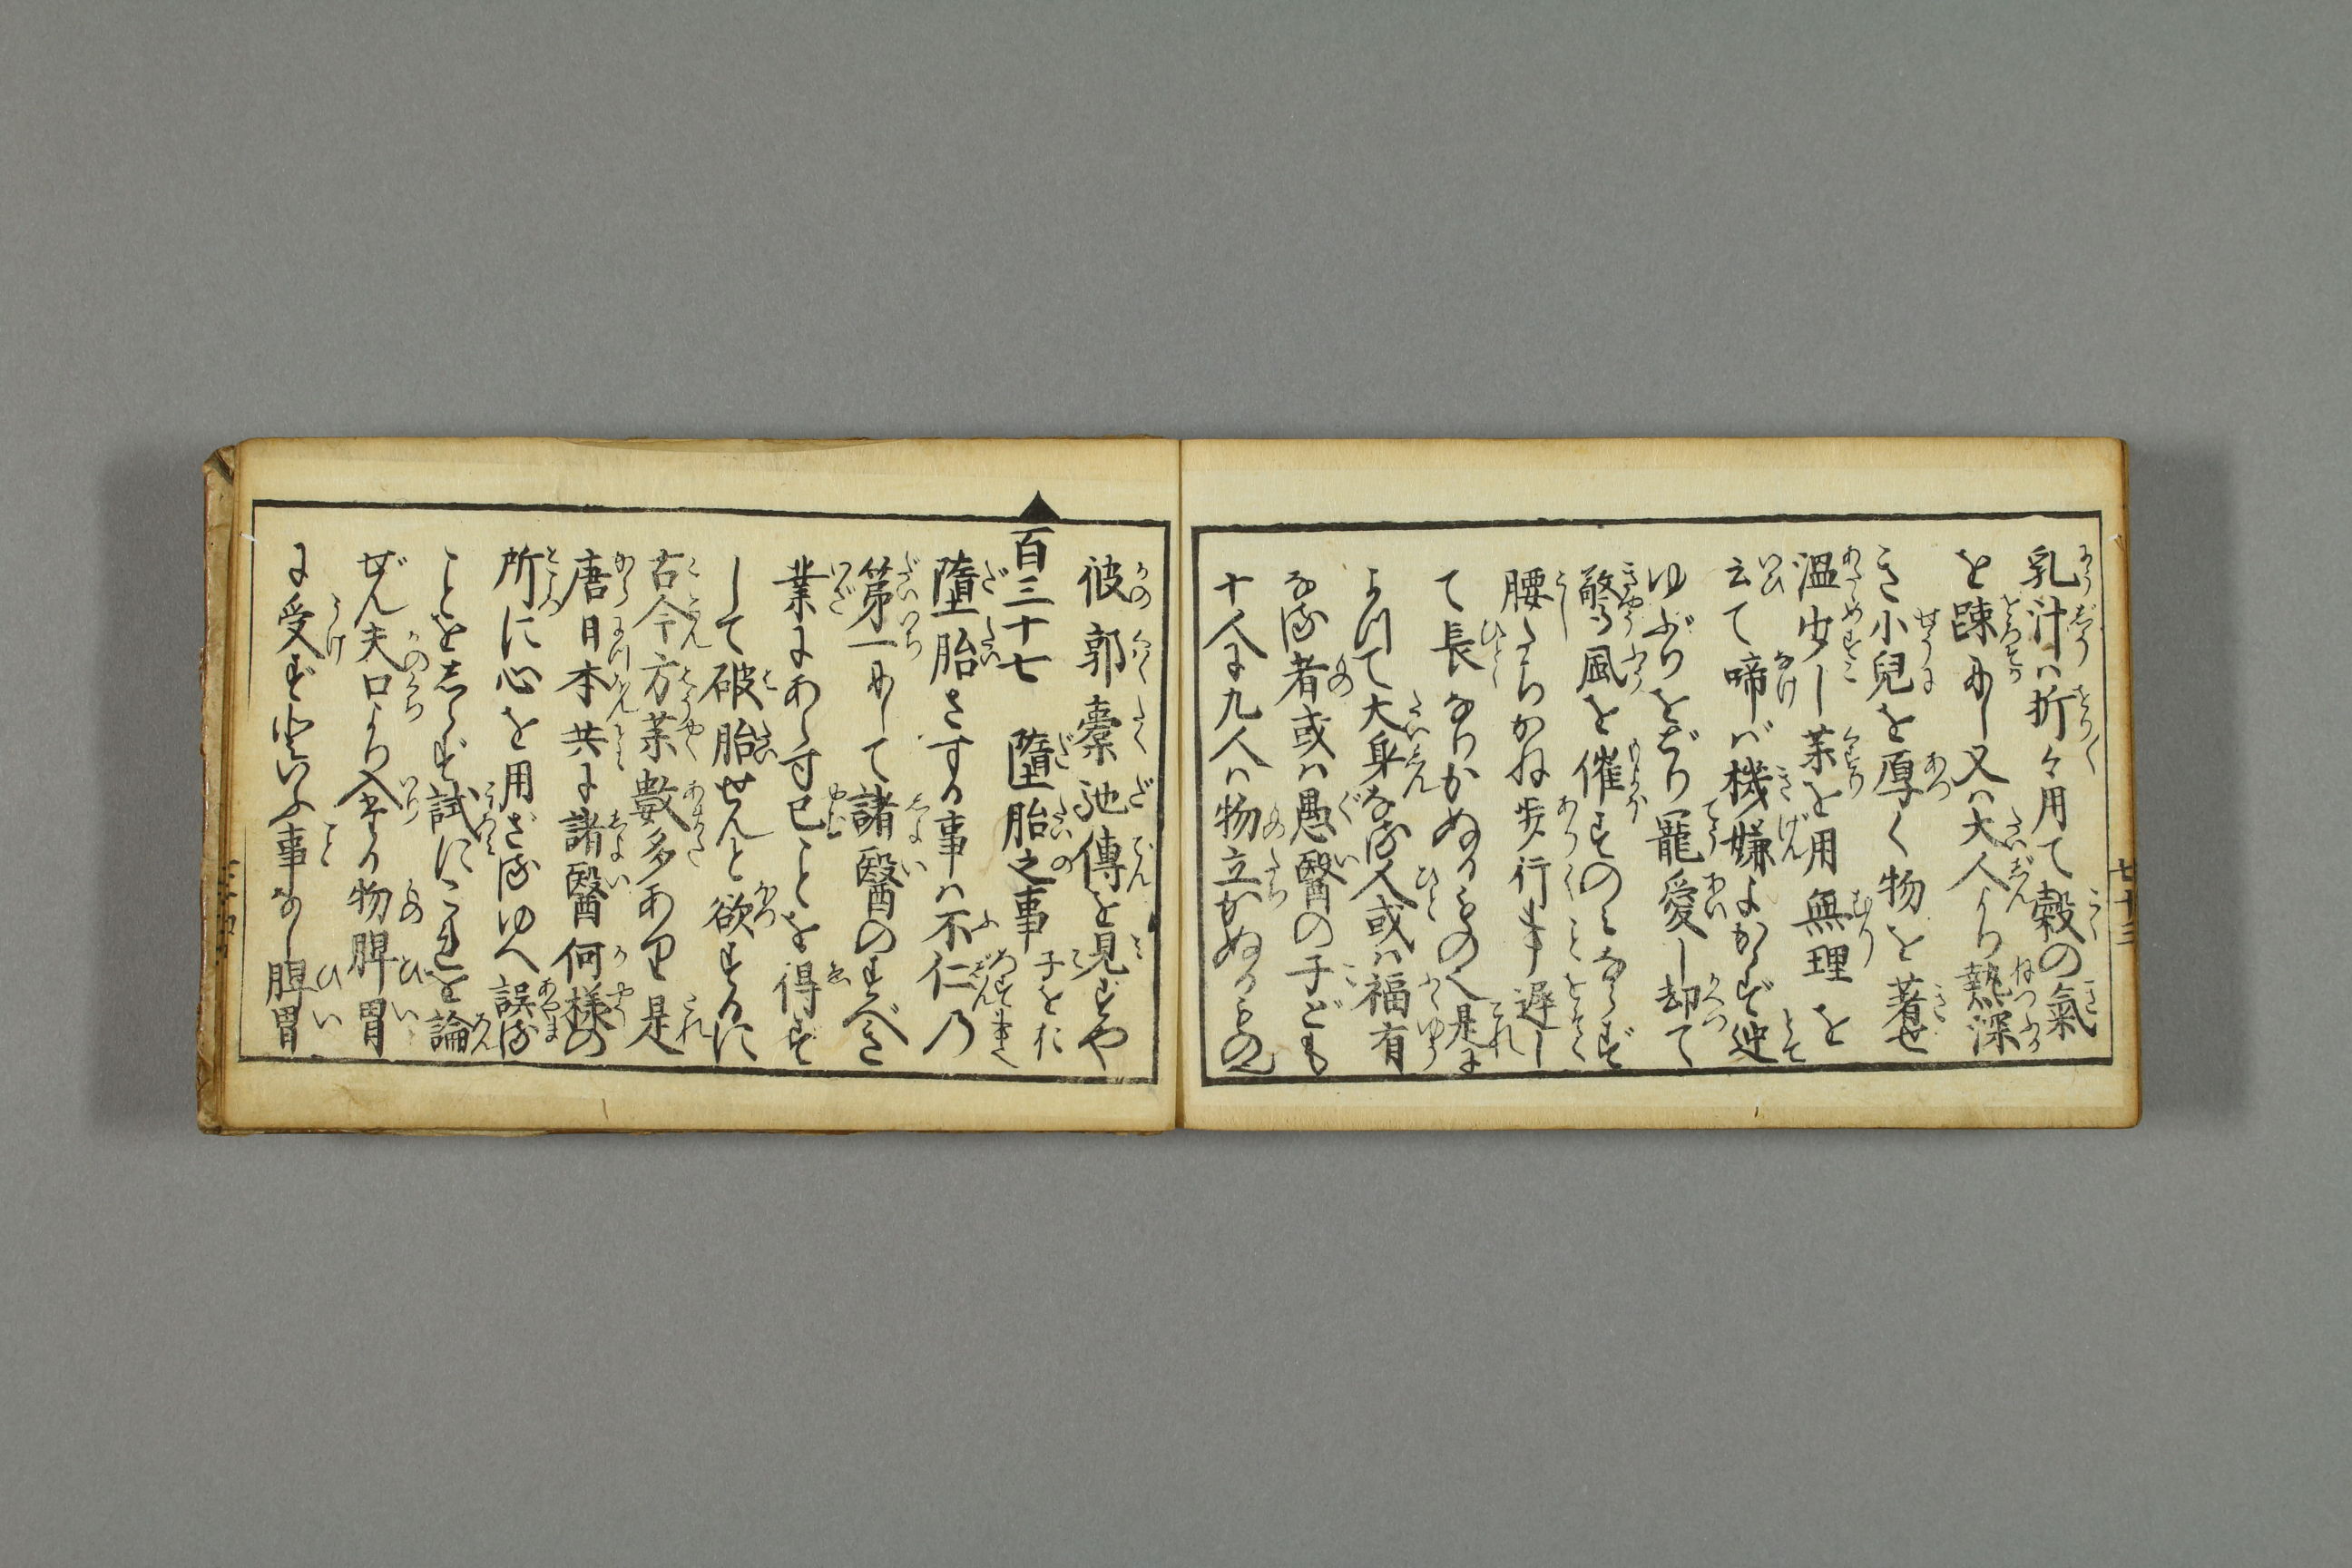 乳汁ハ折々用て穀の氣
を踈にし又ハ大人より熱深
き小兒を厚く物を着せ
温め少し藥を用無理を
云て啼バ機嫌よからず迚
ゆぶりをどり寵愛し却て
驚風を催すのみならず
腰たちかね歩行事遅し
て長なりかぬるもの也是に
よつて大身なる人或ハ福有
なる者或ハ愚醫の子ども
十人に九人ハ物立かぬるもの也
七十三
彼郭橐馳傳を見ずや
▲百三十七 墮胎之事 子をた
墮胎さする事ハ不仁乃
第一にして諸醫のすべき
業にあらず已ことを得ず
して破胎せんと欲するに
古今方藥數多あり是
唐日本共に諸醫何様の
所に心を用ざるゆへ誤る
ことをしらず試にこれを論
ぜん夫口より入たる物脾胃
に受ずといふ事なし脾胃